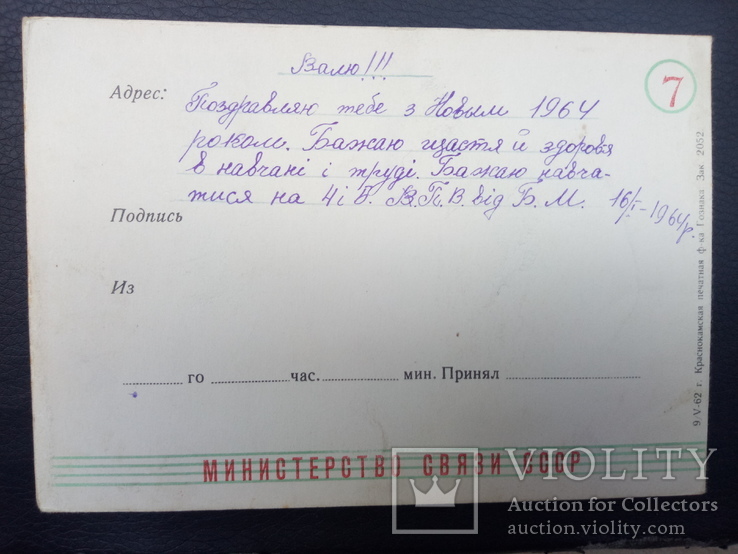 Валю!!!
7
Адрес:
Поздравляю тебе з Новым 1964
роком. Бажаю щастя й здоровя
в навчані і труді. Бажаю навча-
тися на 4 і 5. В.П.В. від Б. М. 16/I-1964р.
Подпись
Из
го час. мин. Принял
МИНИСТЕРСТВО СВЯЗИ СССР
9/V-62 г. Краснокамская печатная ф-ка Гознака Зак. 2052
VIOLITY
Auction for Collectors
auction.violity.com